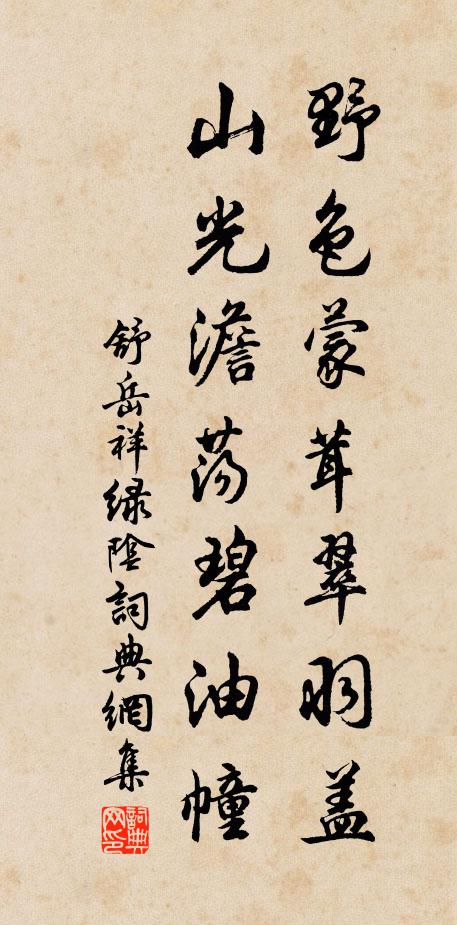 野色蒙茸翠羽盖
山光澹荡碧油幢
舒岳祥绿陰詞典網集
詞典网印